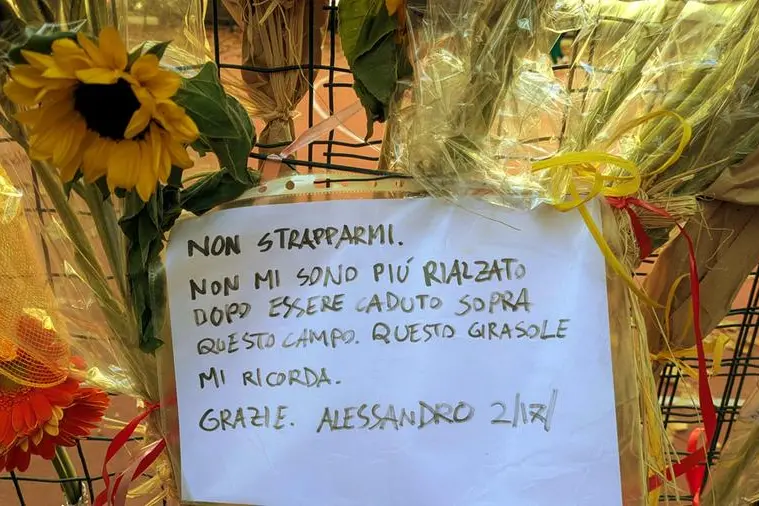 NON STRAPPARMI.
NON MI SONO PIÚ RIALZATO
DOPO ESSERE CADUTO SOPRA
QUESTO CAMPO. QUESTO GIRASOLE
MI RICORDA.
GRAZIE. ALESSANDRO 2/17/